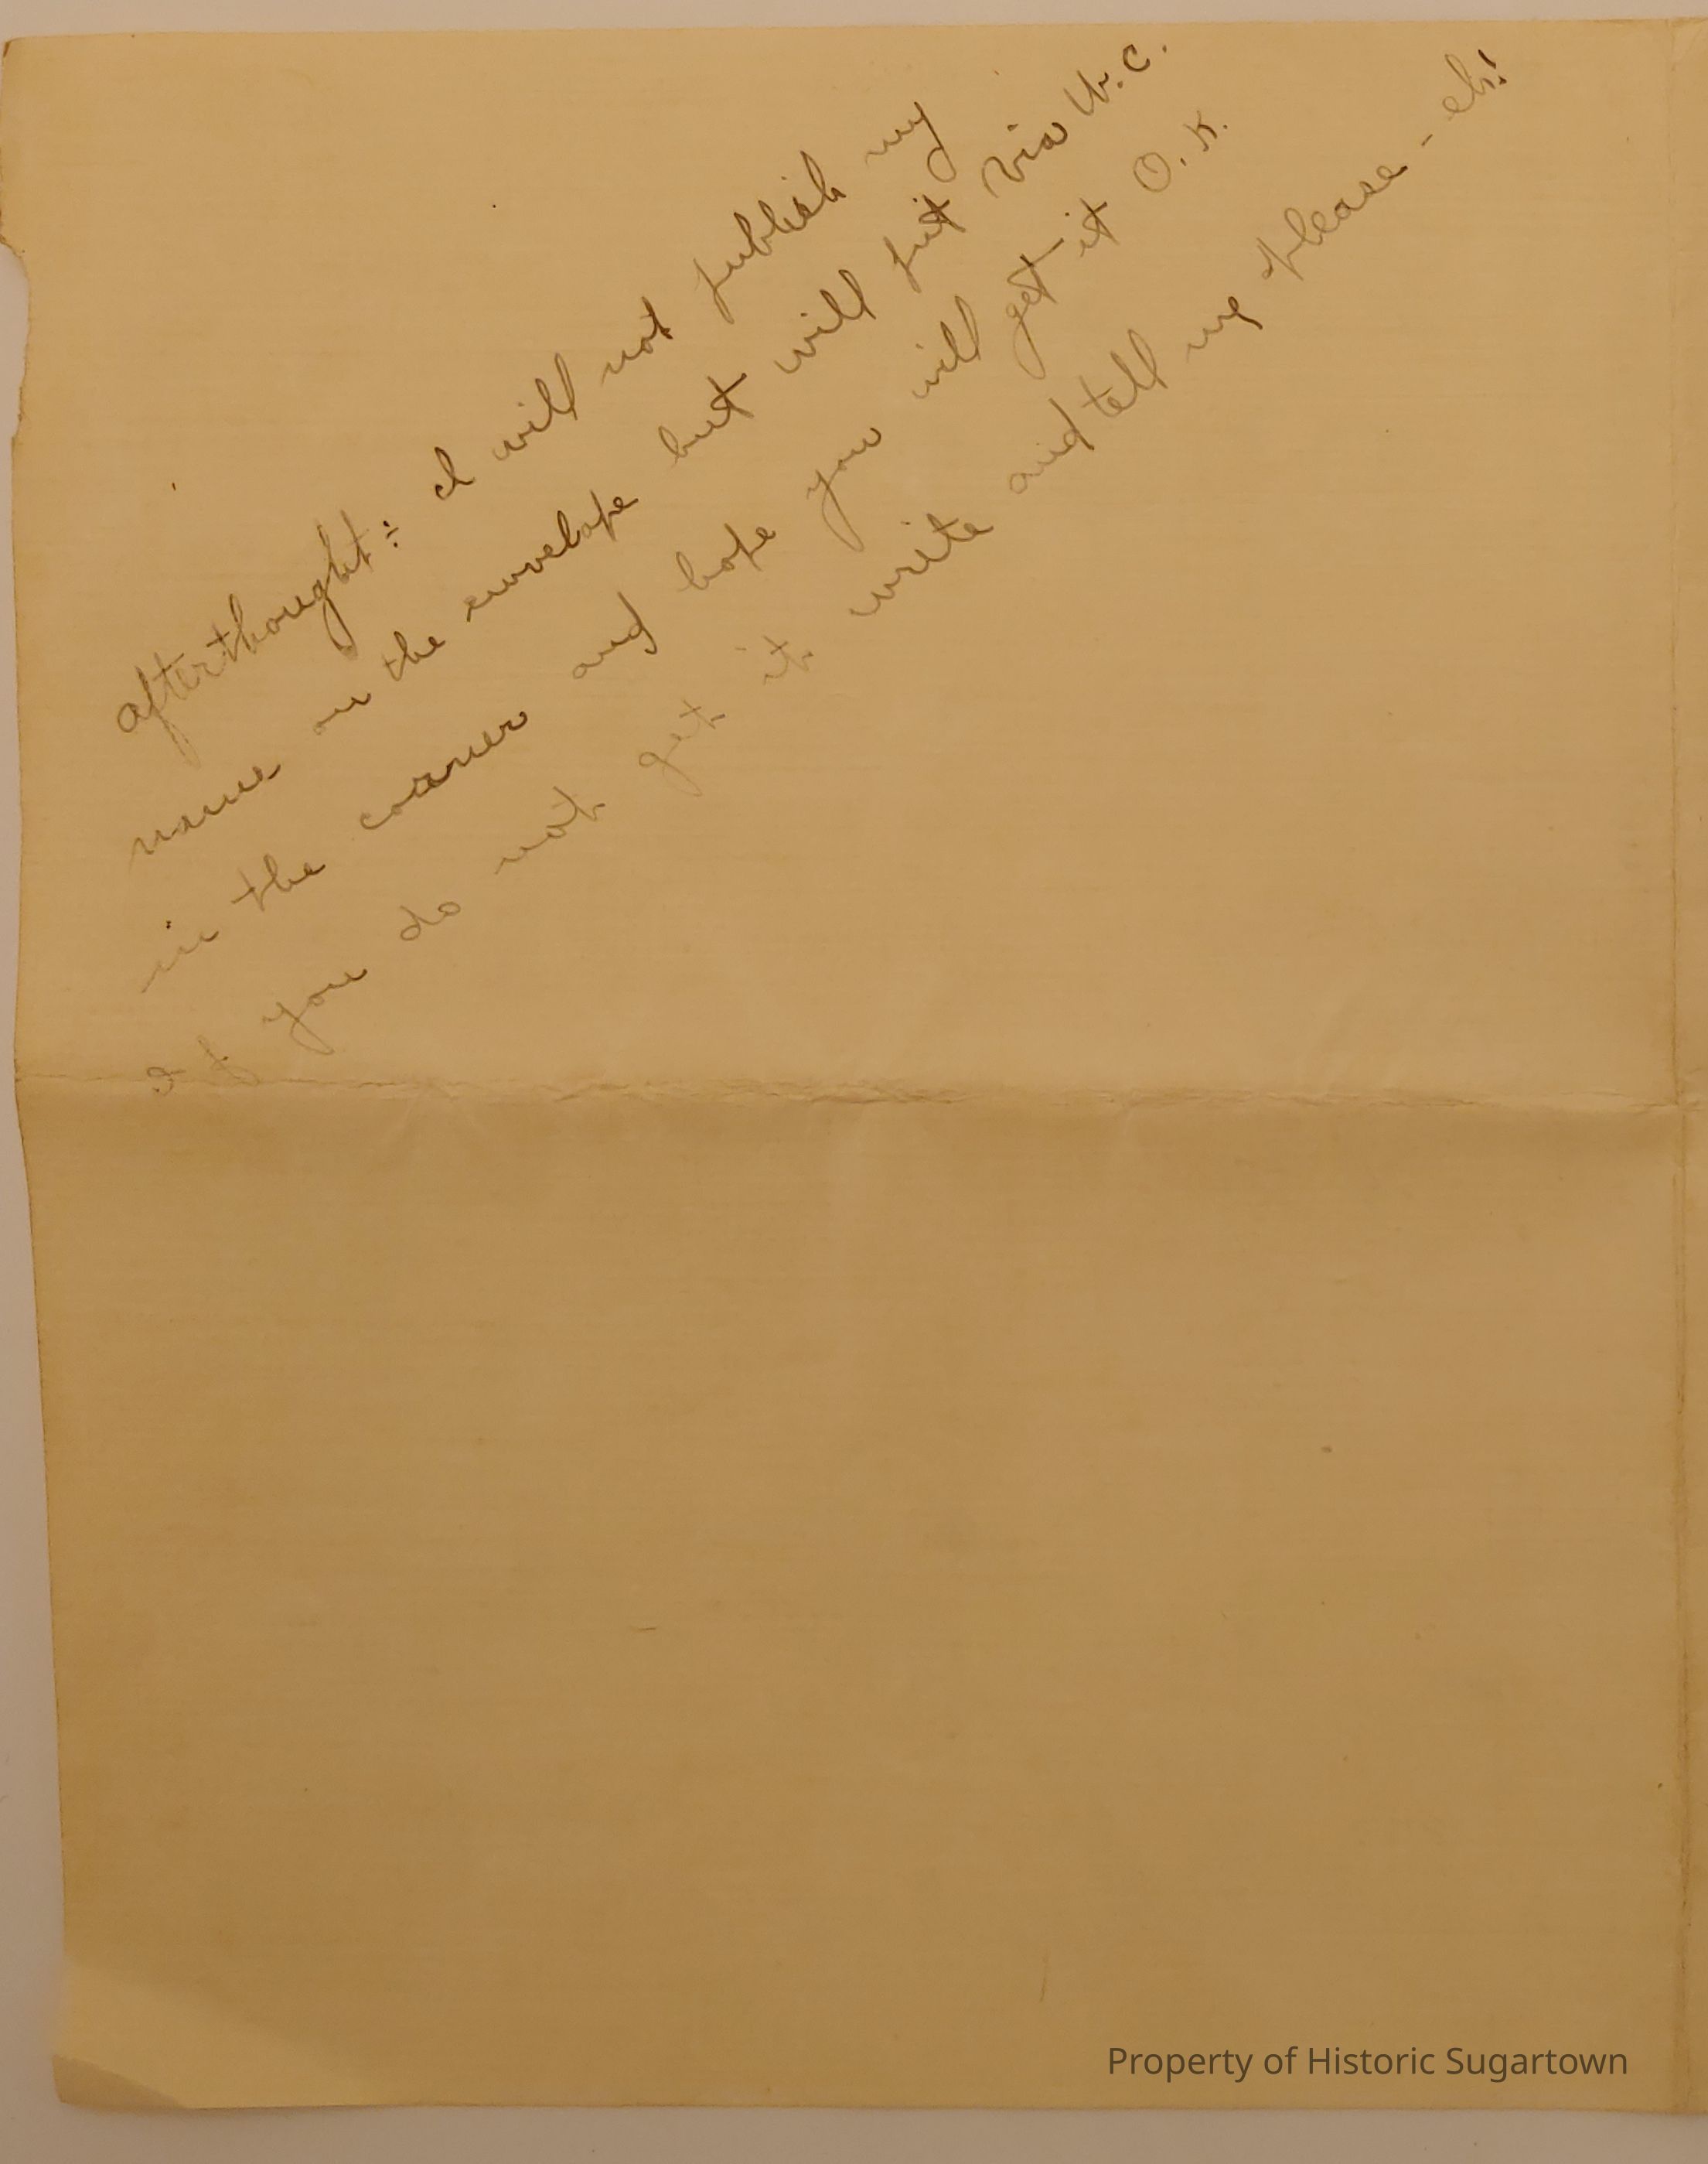 afterthought: I will not publish my
name on the envelope but will put via W. C.
in the corner and hope you will get it O. K.
If you do not get it write and tell me please - eh!
Property of Historic Sugartown